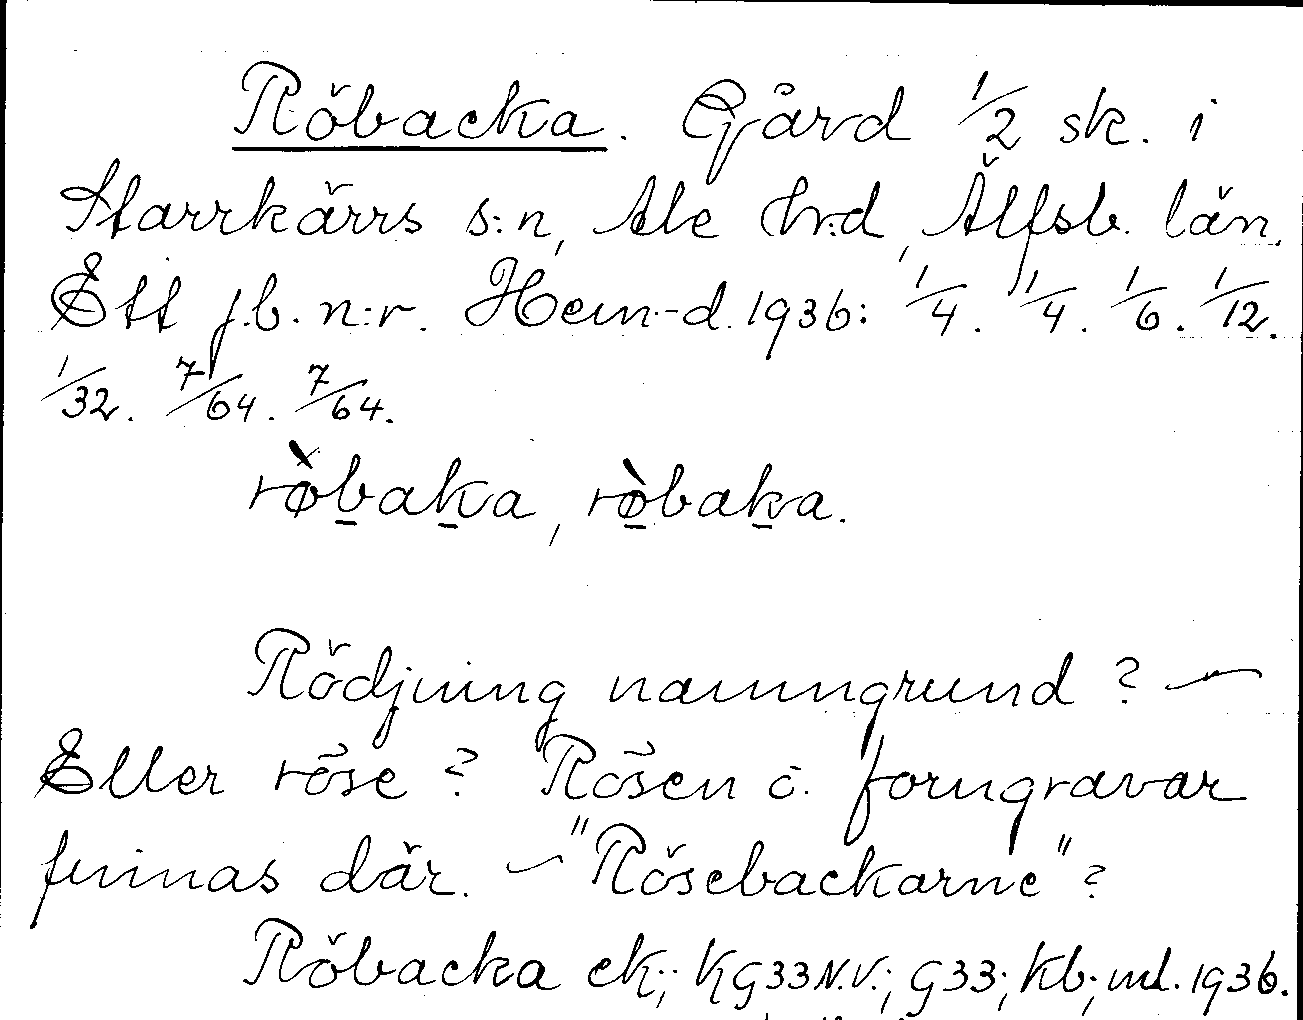 Röbacka. Gård 1/2 sk. i
Starrkärrs s:n, Ale hrd, Älfsb. län.
Ett j.b. n:r. Hem.-d. 1936: 1/4. 1/4. 1/6. 1/12.
1/32. 7/64. 7/64.
rø̀baka, rø̀baka.
Rödjning namngrund? —
Eller röse? Rösen o. forngravar
finnas där. — "Rösebackarne"?
Röbacka ek.; KG33N.V.; G33; Kb; ml. 1936.